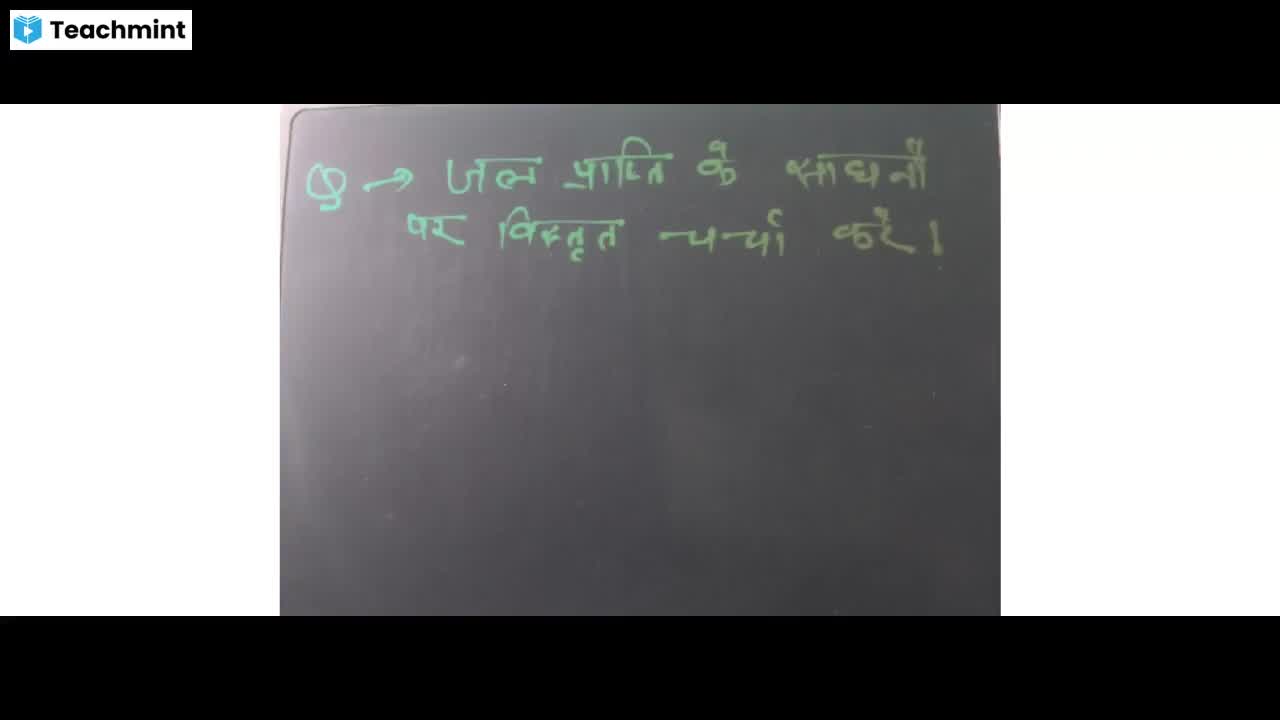 Teachmint
Q → जल प्राप्ति के साधनों
पर विस्तृत चर्चा करें।